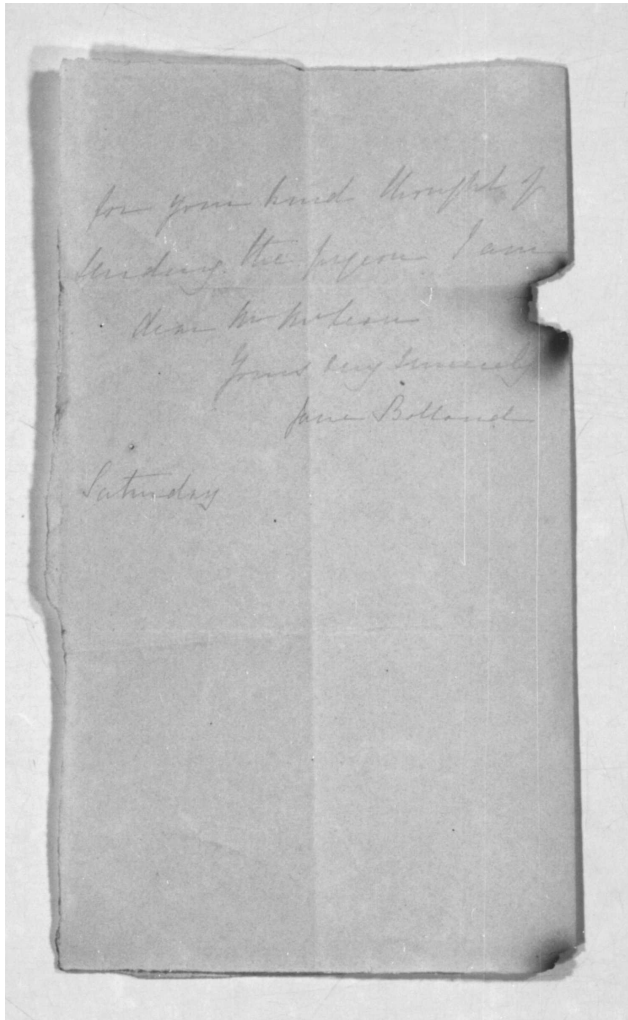 for your kind thought of
sending the pigeon I am
dear Mr
Yours very sincerely
Jane Bolland
Saturday